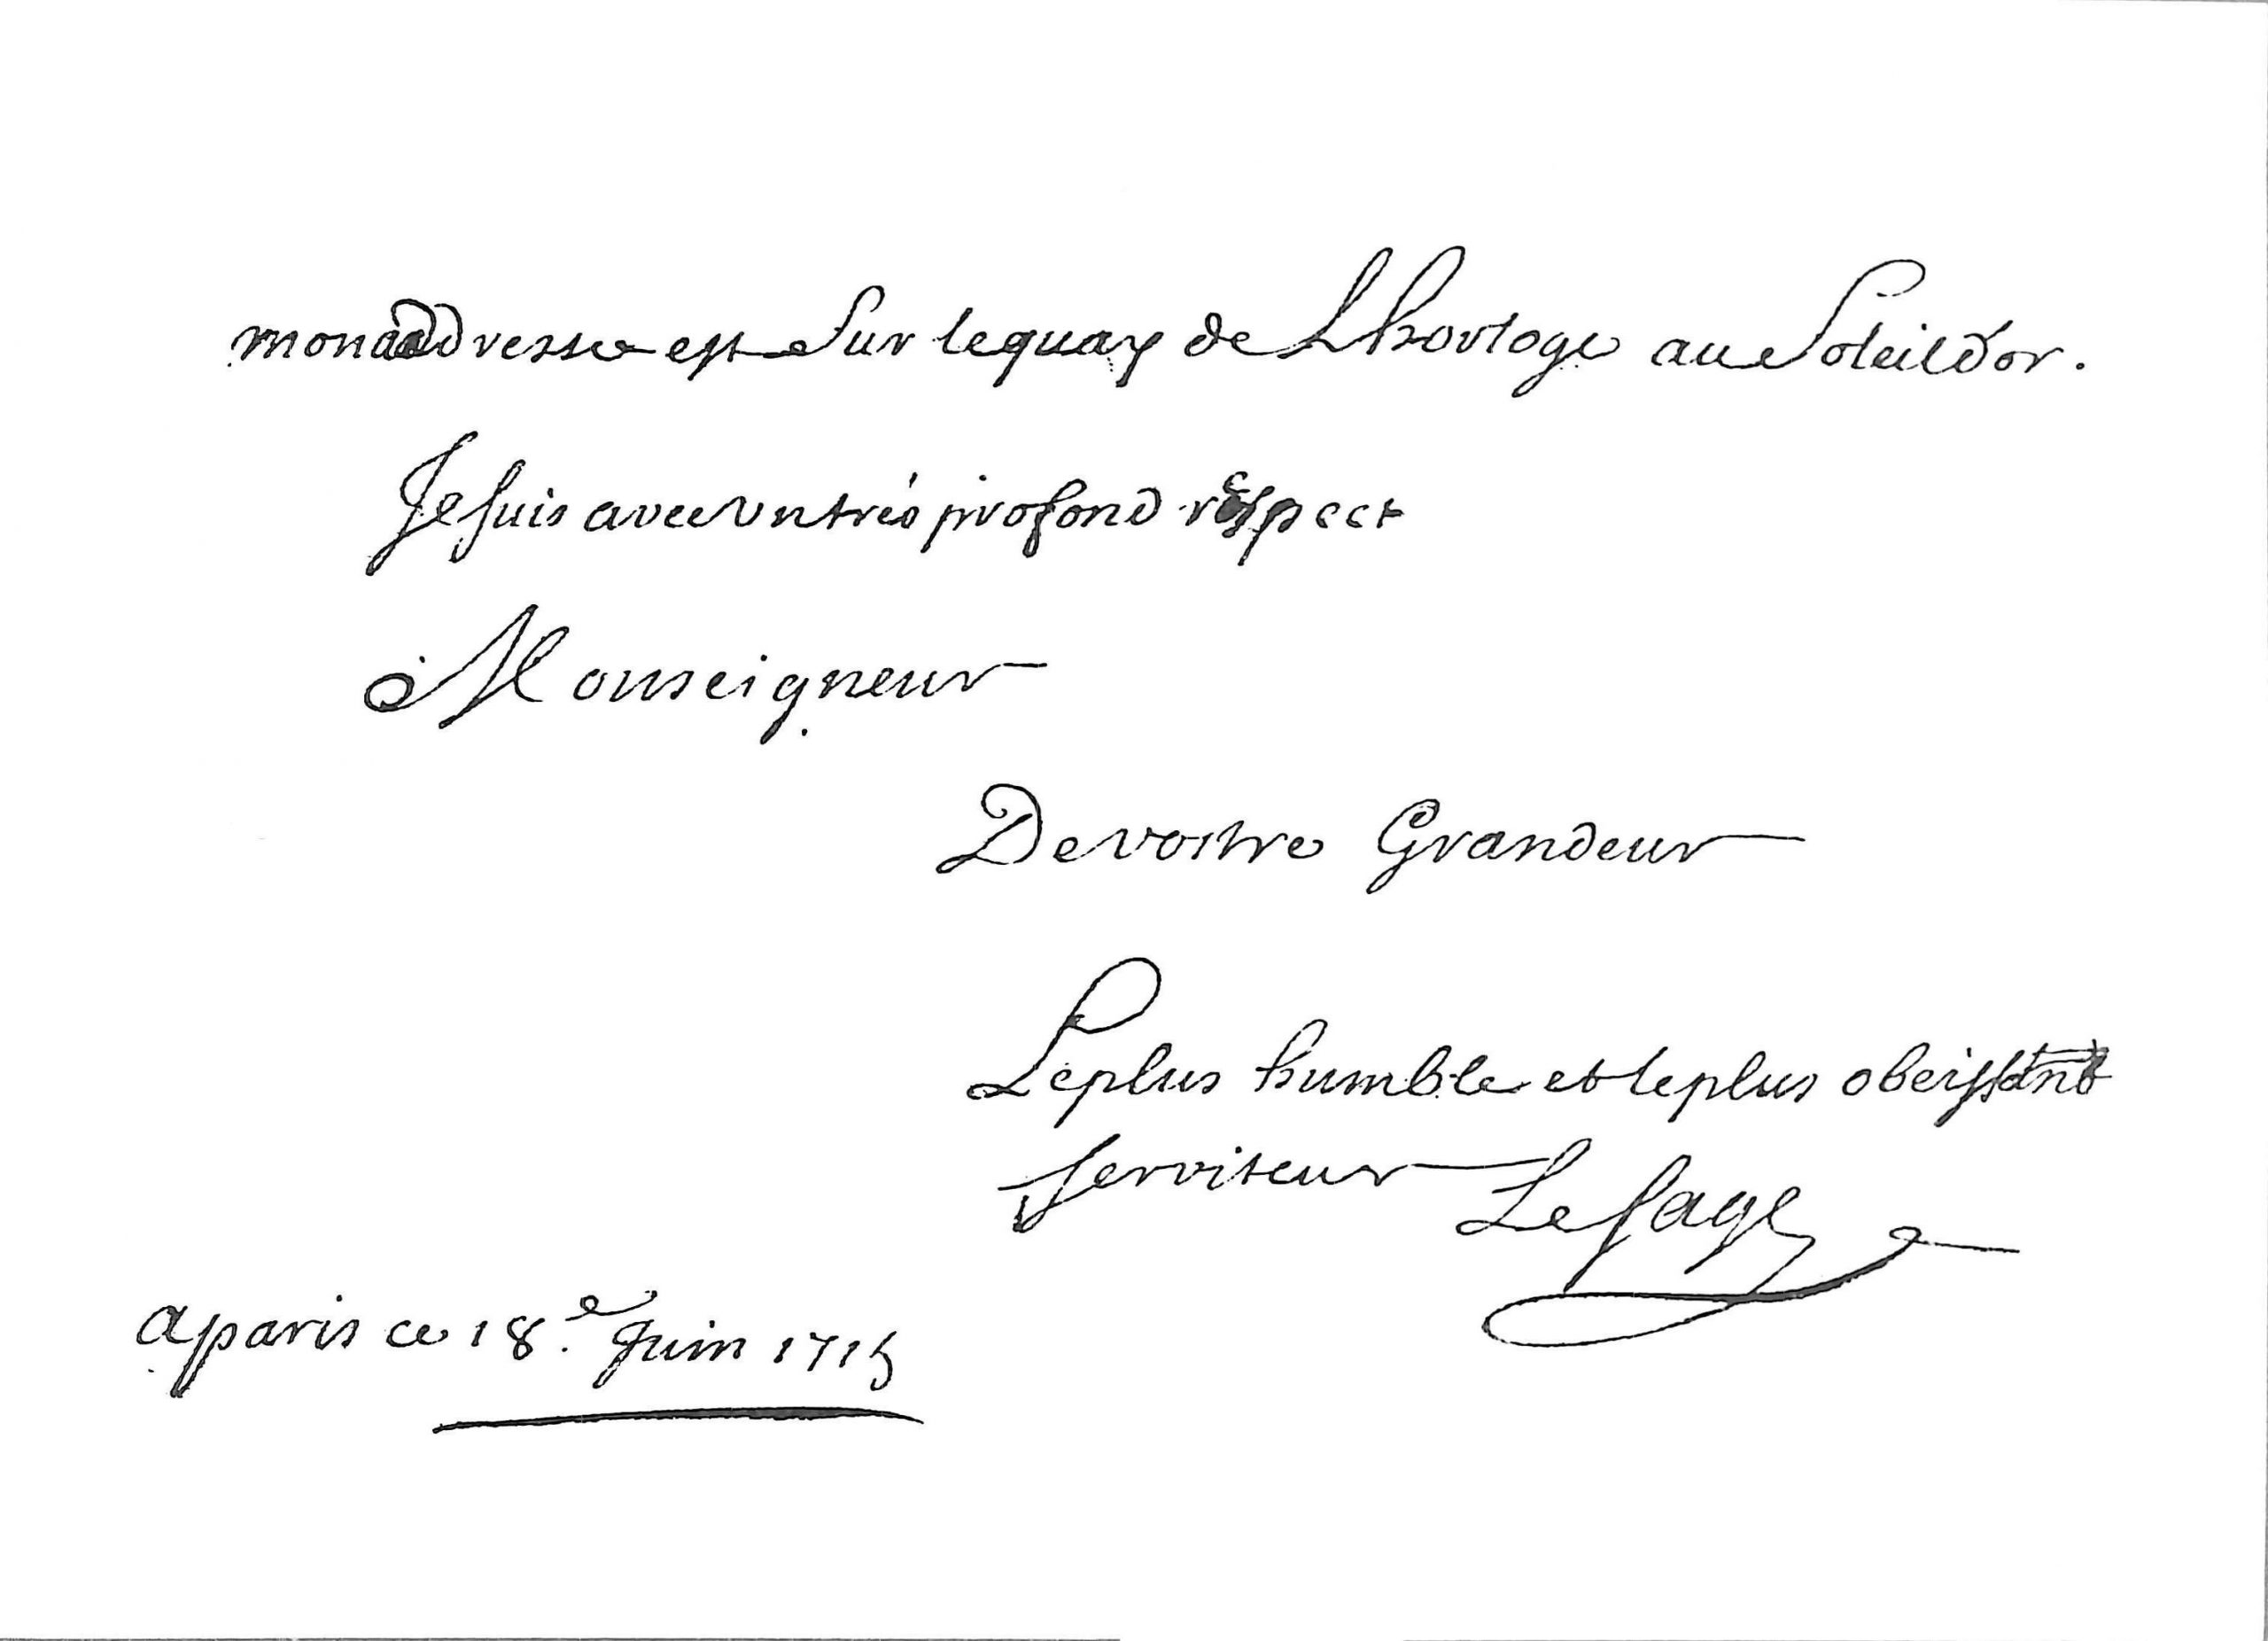 mon addresse est sur le quay de Lhorloge au Soleil dor.
Je suis avec un trés profond respect
Monseigneur
De vostre Grandeur
Le plus humble et le plus obeissant
serviteur Le sage
a paris ce 18.e Juin 1715